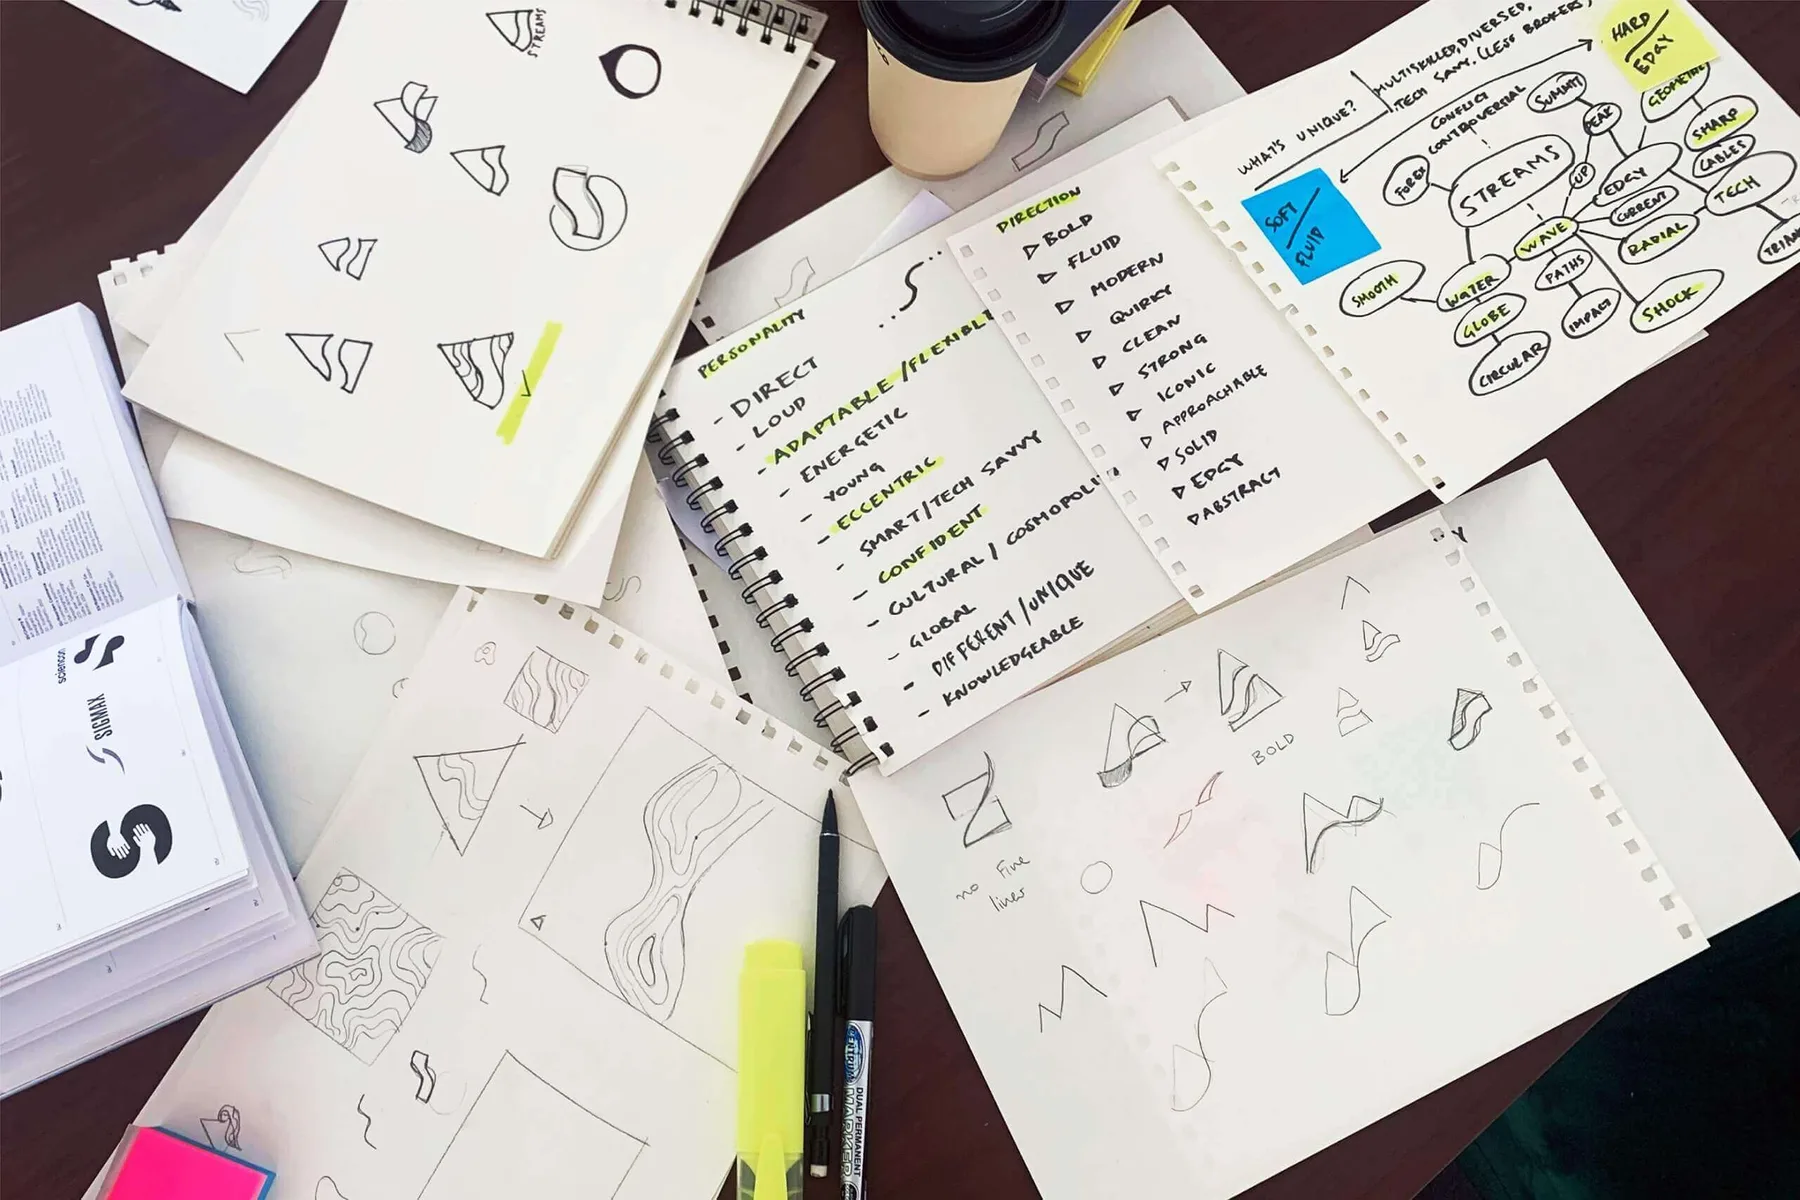 STREAMS
PERSONALITY
- DIRECT
- LOUD
- ADAPTABLE/FLEXIBLE
- ENERGETIC
- YOUNG
- ECCENTRIC
- SMART/TECH SAVVY
- CONFIDENT
- CULTURAL / COSMOPOLI
- GLOBAL
- DIFFERENT/UNIQUE
- KNOWLEDGEABLE
DIRECTION
▷ BOLD
▷ FLUID
▷ MODERN
▷ QUIRKY
▷ CLEAN
▷ STRONG
▷ ICONIC
▷ APPROACHABLE
▷ SOLID
▷ EDGY
▷ ABSTRACT
WHAT'S UNIQUE?
MULTISKILLED, DIVERSED,
TECH SAVY. (LESS BROKERS)
HARD/
EDGY
CONFLICT
CONTROVERSIAL
SOFT/
FLUID
FOREX
STREAMS
SUMMIT
PEAK
UP
GEOMETRIC
SHARP
CABLES
TECH
EDGY
CURRENT
RADIAL
WAVE
PATHS
IMPACT
SHOCK
WATER
SMOOTH
GLOBE
CIRCULAR
TRIAN
BOLD
no Fine
lines
sciencon
SIGMAX
DUAL PERMANENT
MARKER